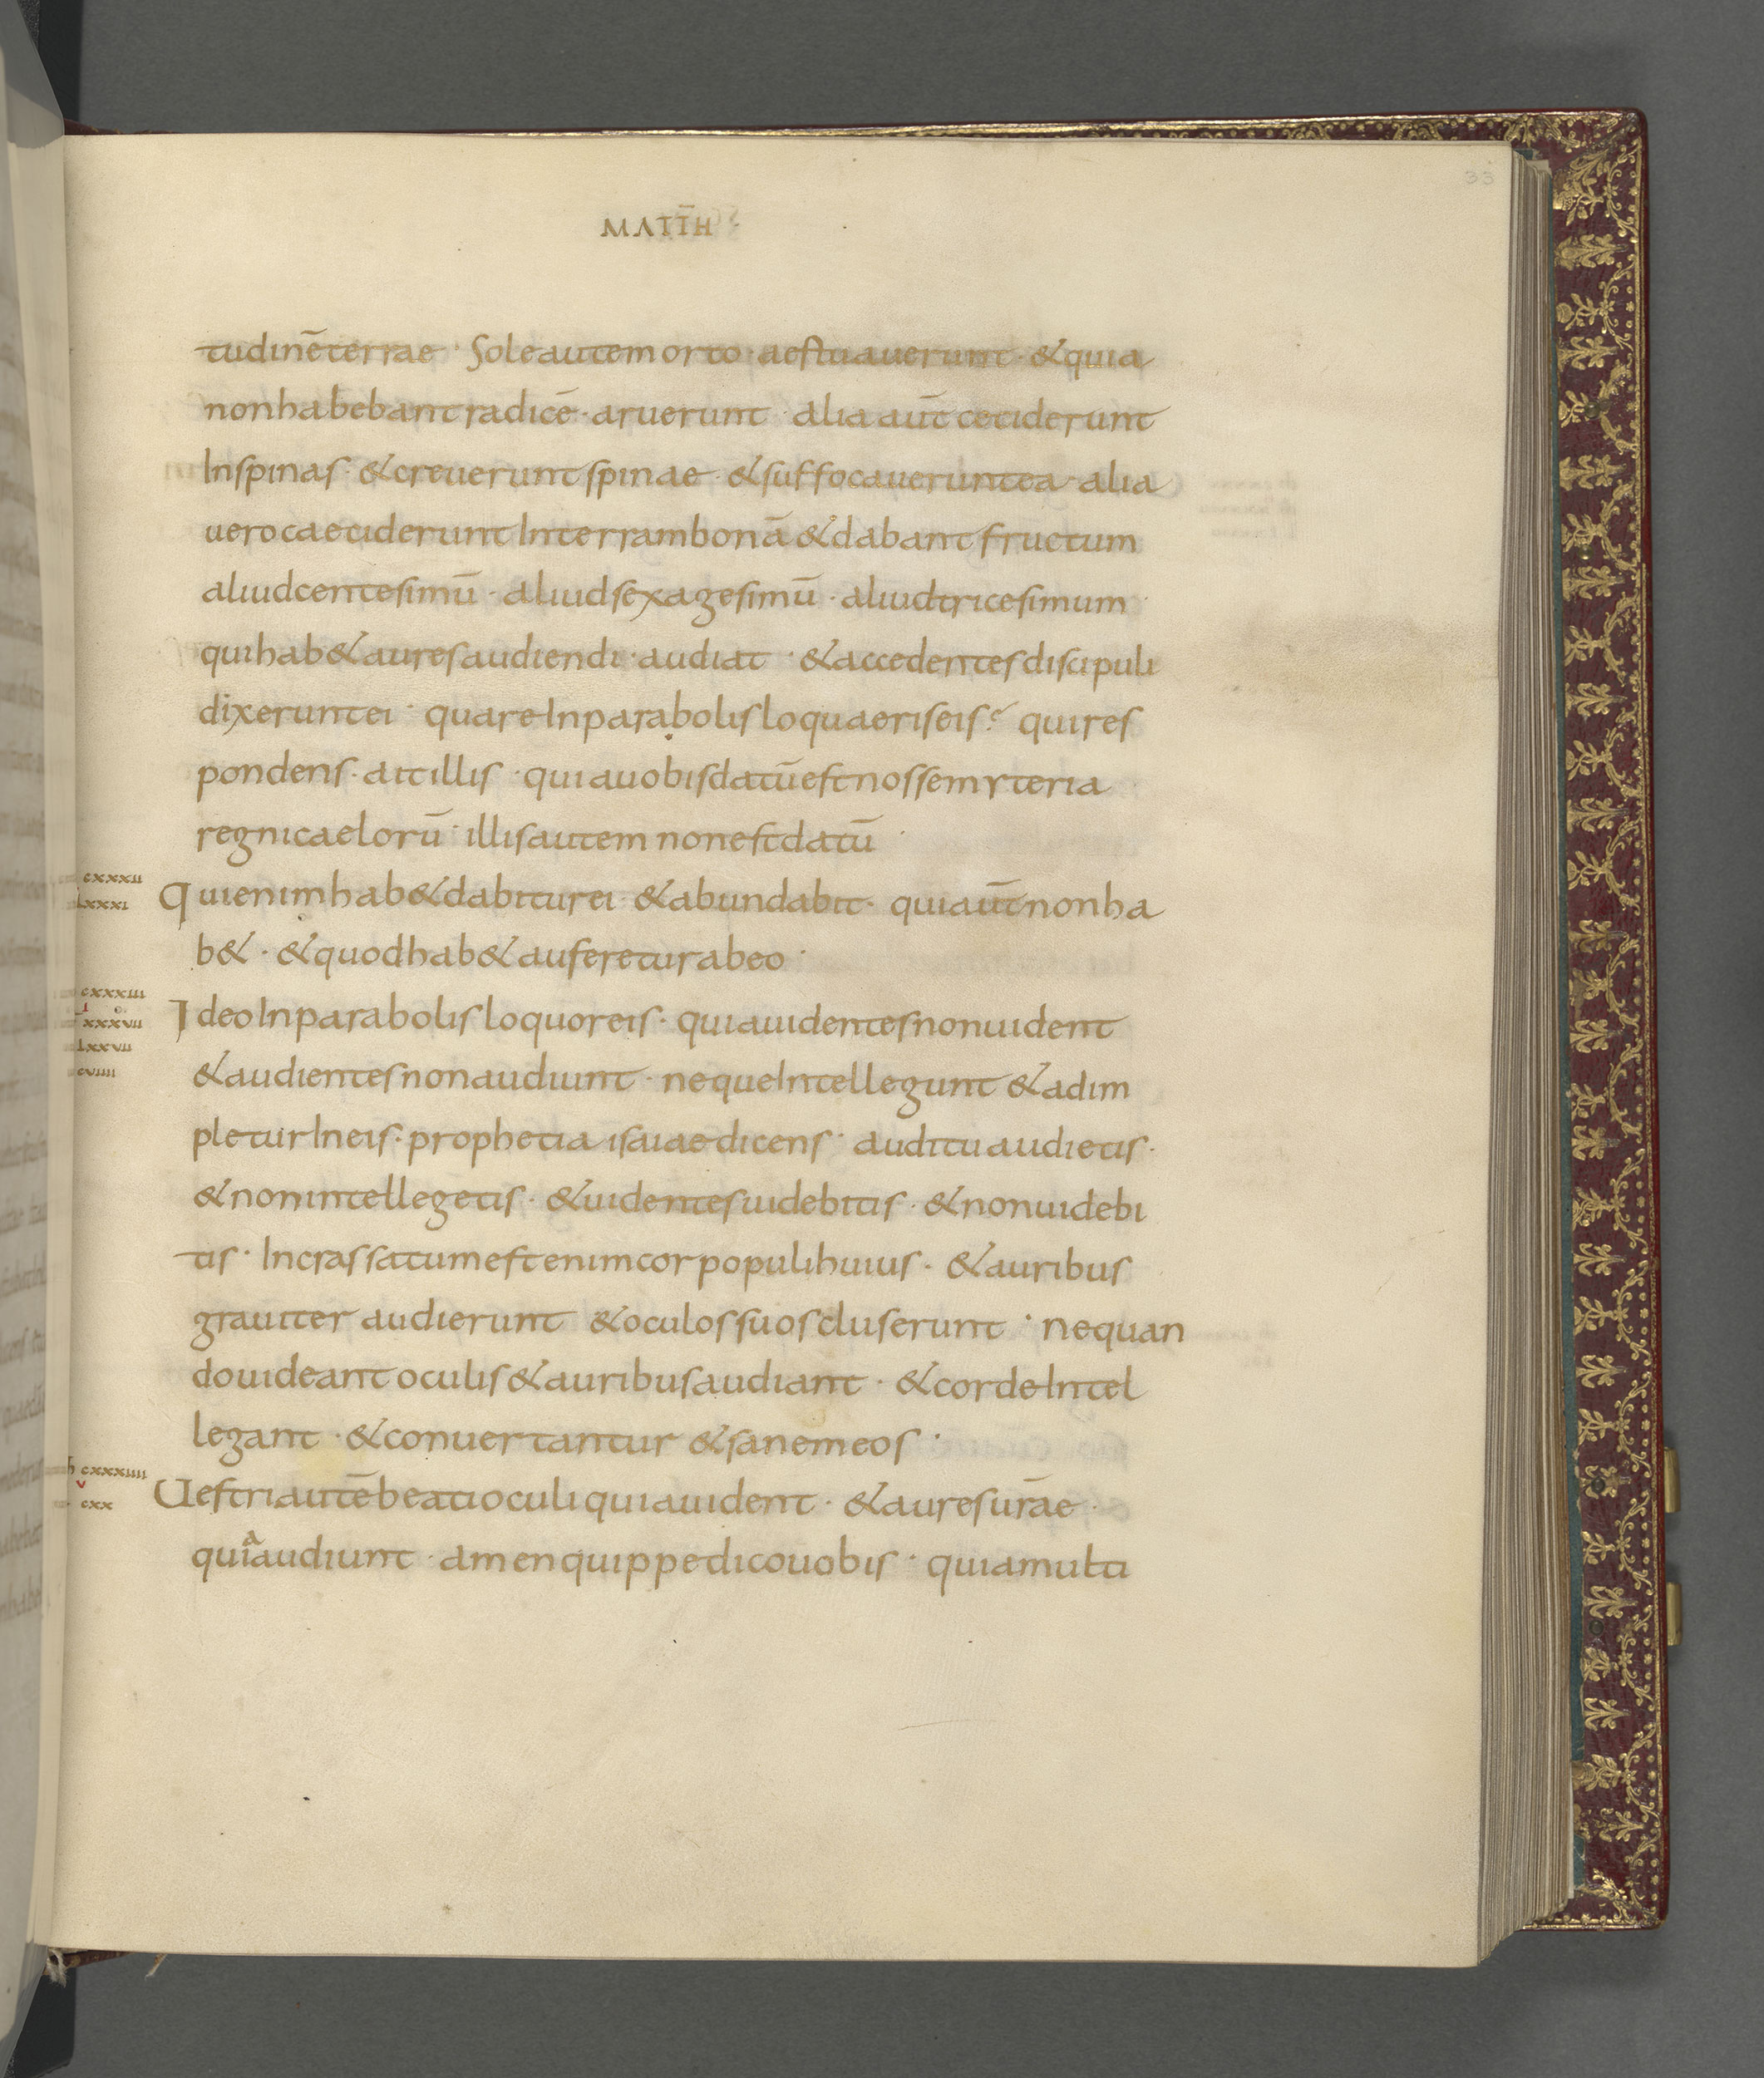 33
MATTH
tudinē terrae · Sole autem orto · aestuauerunt · & quia
non habebant radicē · aruerunt · alia aūt ceciderunt
In spinas · & creuerunt spinae · & suffocauerunt ea · alia
uero caeciderunt In terram bonā & dabant fructum
aliud centesimū · aliud sexagesimū · aliud tricesimum ·
qui hab& aures audiendi · audiat · & accedentes discipuli
dixerunt ei · quare In parabolis loquaeris eis? qui res
pondens · ait illis · quia uobis datū est nosse mysteria
regni caelorū · illis autem non est datū ·
cxxxii
lxxxi
Qui enim hab& dabitur ei · & abundabit · qui aūt non ha
b& · & quod hab& auferetur ab eo ·
cxxxiii
i
xxxvii
lxxvii
cviiii
Ideo In parabolis loquor eis · quia uidentes non uident
& audientes non audiunt · neque Intellegunt & adim
pletur In eis · prophetia isaiae dicens · auditu audietis ·
& non intellegetis · & uidentes uidebitis · & non uidebi
tis · Incrassatum est enim cor populi huius · & auribus
grauiter audierunt & oculos suos cluserunt · nequan
do uideant oculis & auribus audiant · & corde Intel
legant · & conuertantur & sanem eos ·
cxxxiiii
v
cxx
Uestri autē beati oculi quia uident · & aures ūrae ·
quia audiunt · amen quippe dico uobis · quia multi